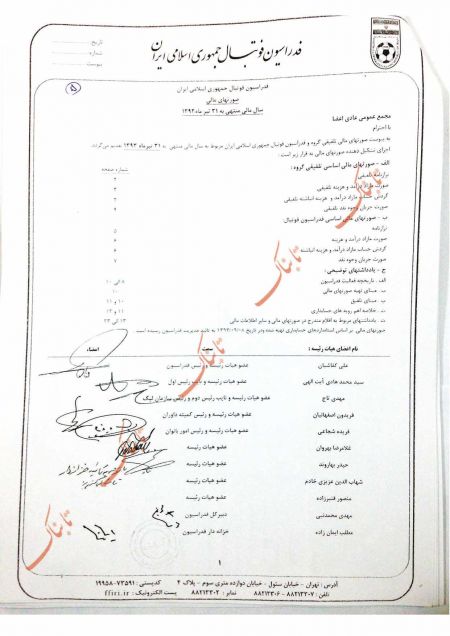 فدراسیون فوتبال جمهوری اسلامی ایران
تاریخ
شماره
پیوست
۵
فدراسیون فوتبال جمهوری اسلامی ایران
صورتهای مالی
سال مالی منتهی به ۳۱ تیر ماه ۱۳۹۳
مجمع عمومی عادی اعضا
با احترام
به پیوست صورتهای مالی تلفیقی گروه و فدراسیون فوتبال جمهوری اسلامی ایران مربوط به سال مالی منتهی به ۳۱ تیرماه ۱۳۹۳ تقدیم می‌گردد.
اجزای تشکیل دهنده صورتهای مالی به قرار زیر است :
شماره صفحه
الف - صورتهای مالی اساسی تلفیقی گروه :
ترازنامه تلفیقی ۲
صورت مازاد درآمد و هزینه تلفیقی ۳
گردش حساب مازاد درآمد و هزینه انباشته تلفیقی ۳
صورت جریان وجوه نقد تلفیقی ۴
ب - صورتهای مالی اساسی فدراسیون فوتبال
ترازنامه ۵
صورت مازاد درآمد و هزینه ۶
گردش حساب مازاد درآمد و هزینه انباشته ۶
صورت جریان وجوه نقد ۷
ج - یادداشتهای توضیحی :
الف - تاریخچه فعالیت فدراسیون ۸ الی ۱۰
ب - مبنای تهیه صورتهای مالی ۱۰
پ - مبنای تلفیق ۱۰ و ۱۱
ت - خلاصه اهم رویه های حسابداری ۱۱ و ۱۲
ث - یادداشتهای مربوط به اقلام مندرج در صورتهای مالی و سایر اطلاعات مالی ۱۳ الی ۲۳
صورتهای مالی بر اساس استانداردهای حسابداری تهیه شده ودر تاریخ ۱۳۹۳/۰۹/۰۸ به تائید مدیریت فدراسیون رسیده است .
نام اعضای هیات رئیسه : سمت امضاء
علی کفاشیان عضو هیات رئیسه و رئیس فدراسیون
سید محمد هادی آیت الهی عضو هیات رئیسه و نایب رئیس اول
مهدی تاج عضو هیات رئیسه و نایب رئیس دوم و رئیس سازمان لیگ
فریدون اصفهانیان عضو هیات رئیسه و رئیس کمیته داوران
فریده شجاعی عضو هیات رئیسه و رئیس امور بانوان
غلامرضا بهروان عضو هیات رئیسه
حیدر بهاروند عضو هیات رئیسه
شهاب الدین عزیزی خادم عضو هیات رئیسه
منصور قنبرزاده عضو هیات رئیسه
مهدی محمدنبی دبیر کل فدراسیون
مطلب ایمان زاده خزانه دار فدراسیون
تابناک
تابناک
تابناک
تابناک
تابناک
تابناک
۱
آدرس : تهران - خیابان سئول - خیابان دوازده متری سوم - پلاک ۴ کدپستی : ۷۳۵۹۱-۱۹۹۵۸
تلفن : ۸۸۲۱۳۳۰۷ - ۸۸۲۱۳۳۰۶ نمابر : ۸۸۲۱۳۳۰۲ پست الکترونیک : ffiri.ir